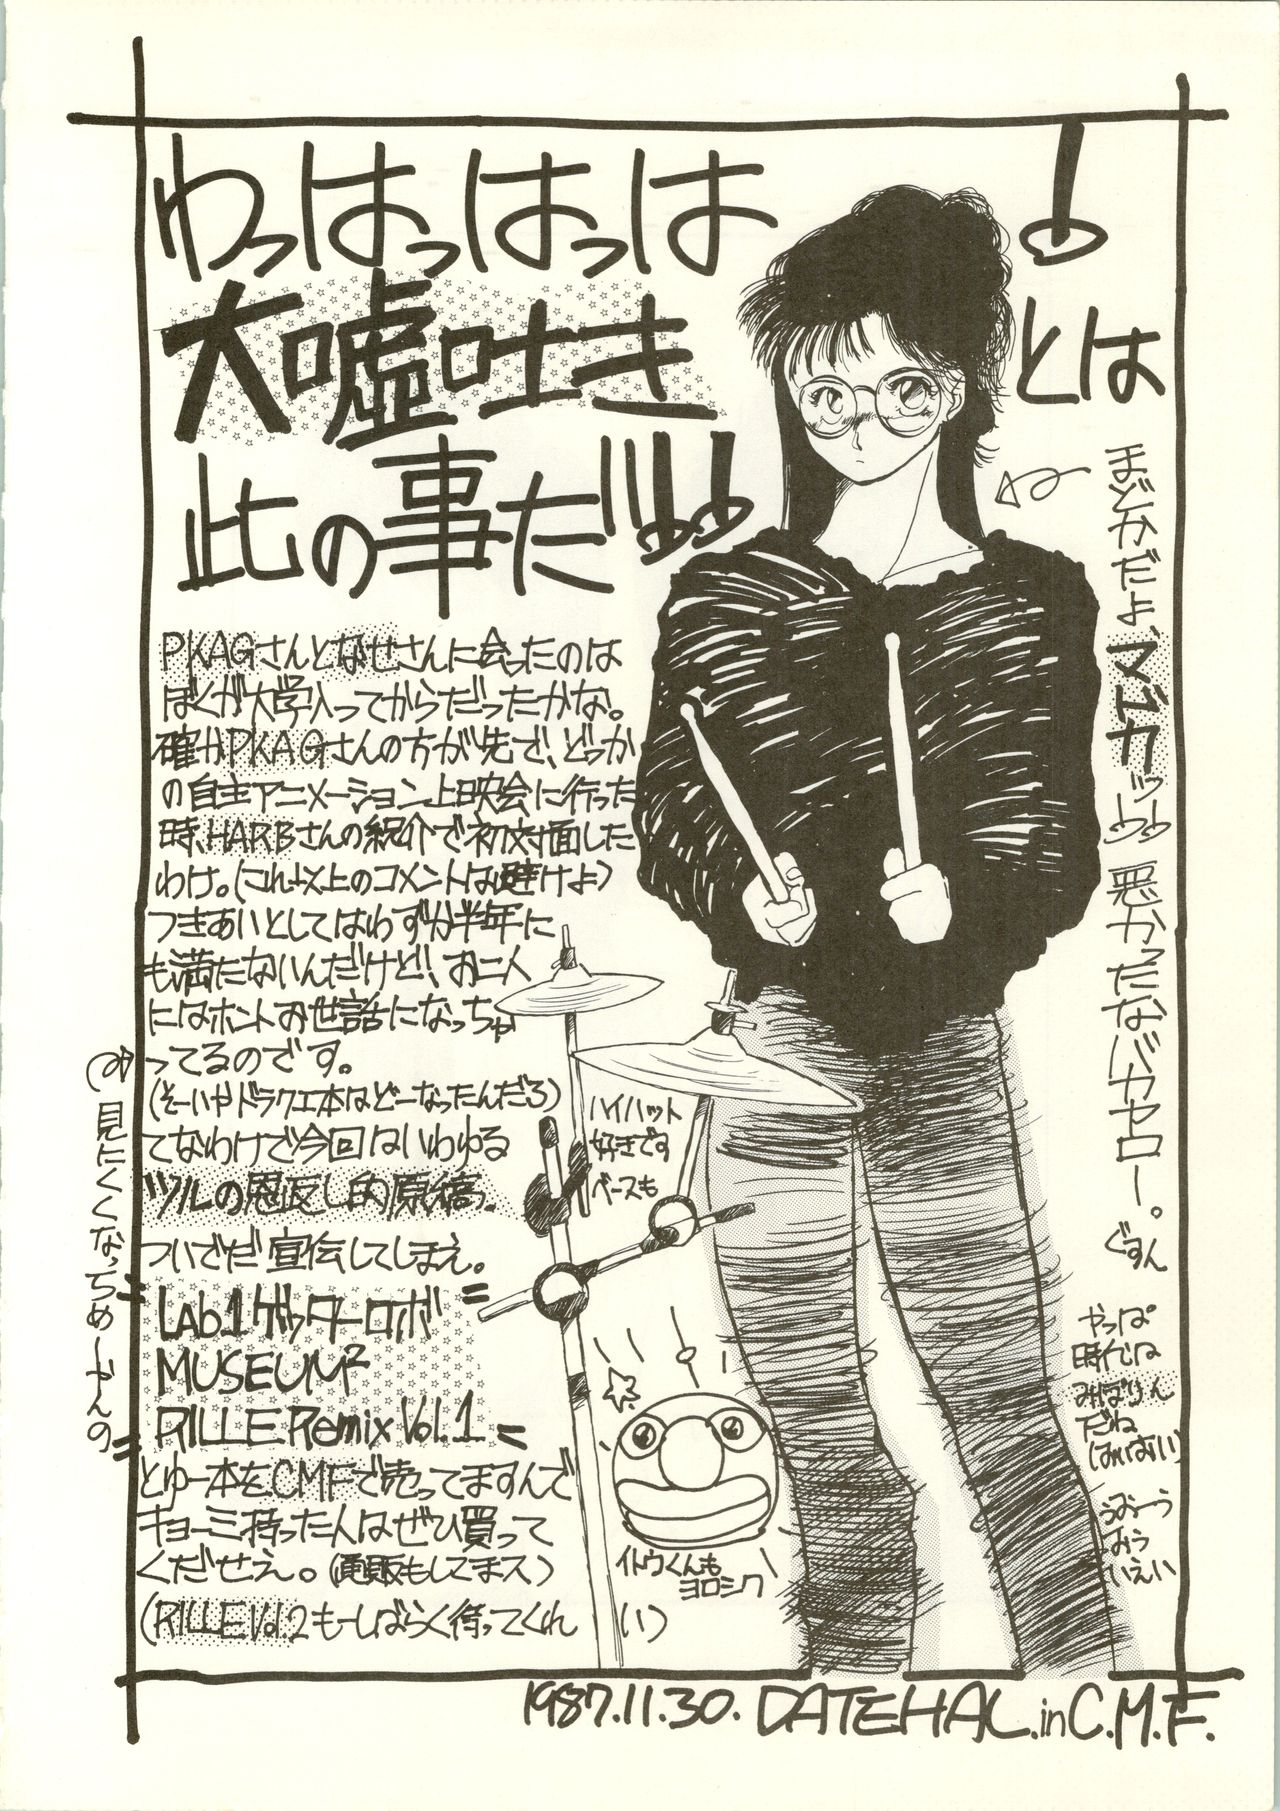 わっはっはっは!
とは
大嘘吐き
此の事だ!!!
PKAGさんとなせさんに会ったのは
ぼくが大学入ってからだったかな。
確かPKAGさんの方が先で、どっか
の自主アニメーション上映会に行った
時、HARBさんの紹介で初対面した
わけ。(これ以上のコメントは避けよ)
つきあいとしてはわずか半年に
も満たないんだけど、お二人
にはホントお世話になっちゃ
ってるのです。
(そーいやドラクエ本はどーなったんだろ)
てなわけで今回はいわゆる
ツルの恩返し的原稿。
ついでだ宣伝してしまえ。
Lab.1ゲッターロボ
MUSEUM²
RILLE Remix Vol.1
とゆー本をCMFで売ってますんで
キョーミ持った人はぜひ買って
くだせえ。(通販もしてまス)
(RILLE Vol.2もーしばらく待ってくれい)
見にくくなっちめーやんの
まどかだよ、マドカッ!! 悪かったなバカヤロー。
ぐすん
ハイハット
好きです
ベースも
やっぱ
時代は
みぽりん
だね
(はいはい)
うおーう
みう
いえい
イトウくんも
ヨロシク
1987.11.30. DATEHAL.in C.M.F.